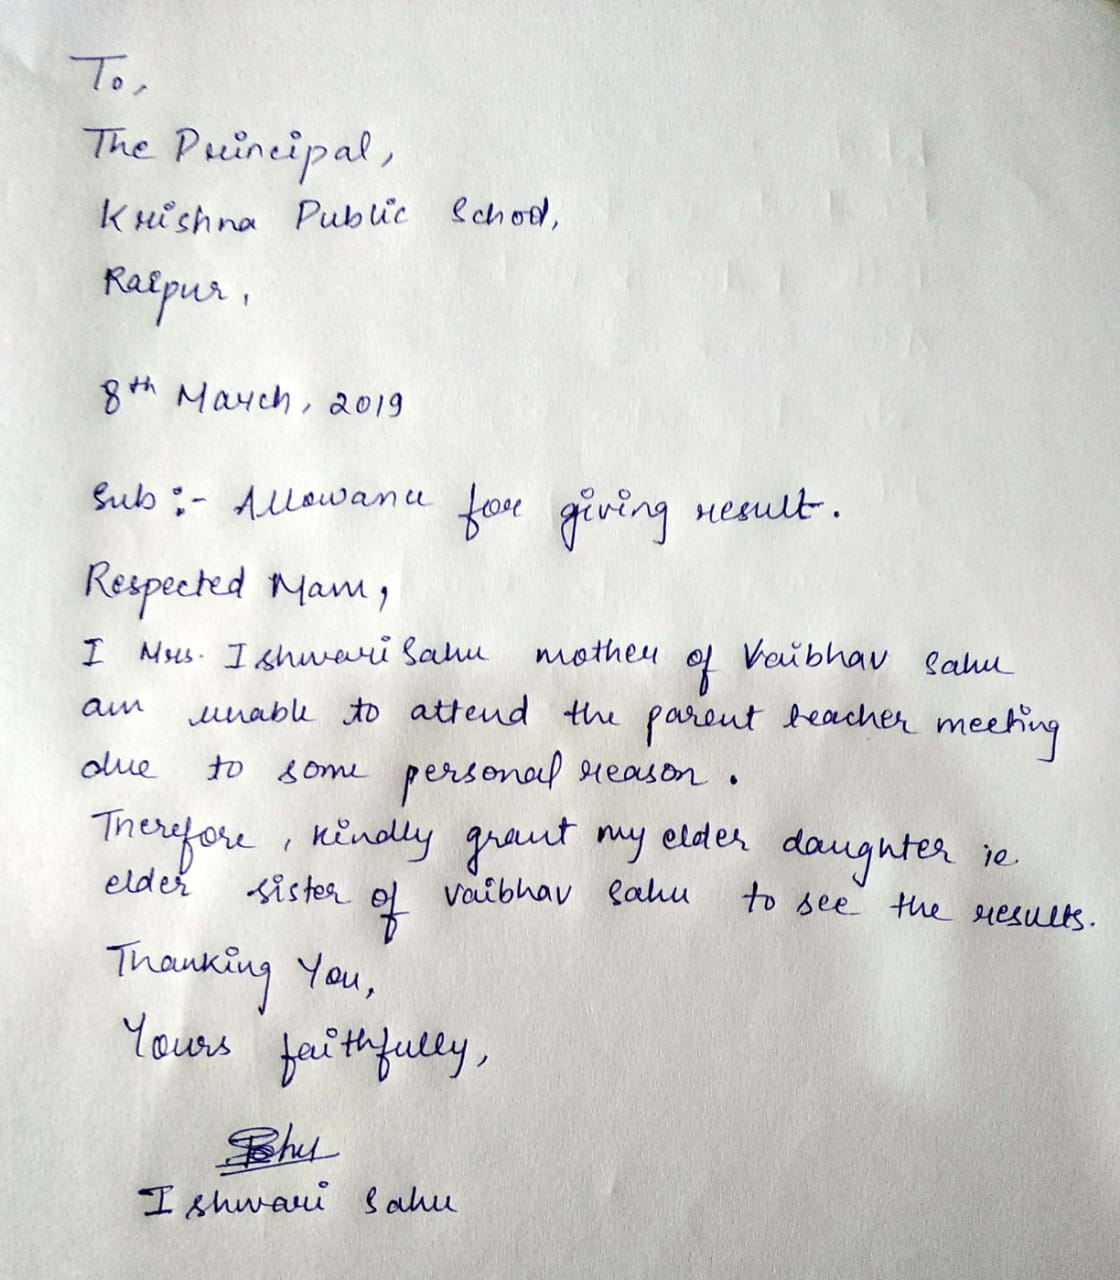 To,
The Principal,
Krishna Public School,
Raipur,
8th March, 2019
Sub :- Allowance for giving result.
Respected Mam,
I Mrs. Ishwari Sahu mother of Vaibhav Sahu
am unable to attend the parent teacher meeting
due to some personal reason.
Therefore, kindly grant my elder daughter ie
elder sister of Vaibhav Sahu to see the results.
Thanking You,
Yours faithfully,
Ishwari Sahu